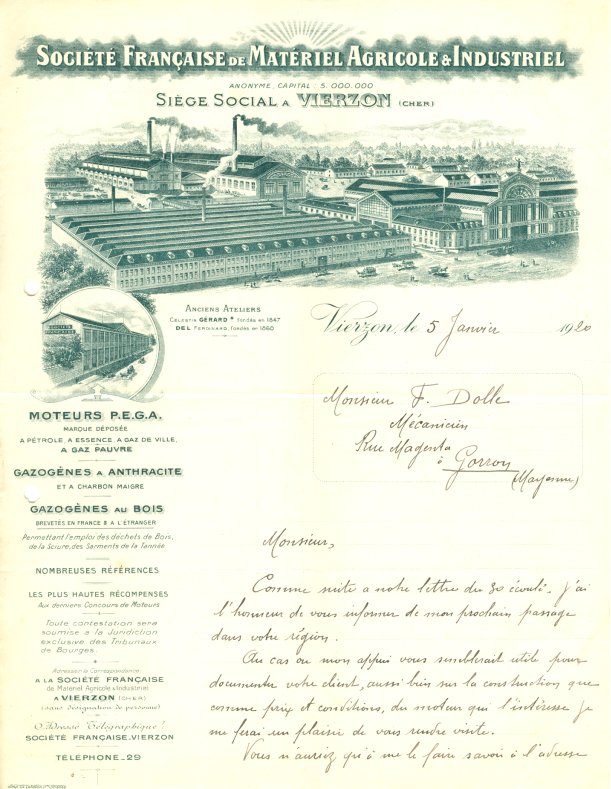 SOCIÉTÉ FRANÇAISE DE MATÉRIEL AGRICOLE & INDUSTRIEL
ANONYME, CAPITAL : 5.000.000
SIÈGE SOCIAL A VIERZON (CHER)
ANCIENS ATELIERS
CÉLESTIN GÉRARD * fondés en 1847
DEL FERDINAND, fondés en 1860
Vierzon, le 5 Janvier 1920
SOCIÉTÉ
FRANÇAISE
Monsieur F. Dolle
Mécanicien
Rue Magenta
à Gorron
(Mayenne)
MOTEURS P.E.G.A.
MARQUE DÉPOSÉE
A PÉTROLE, A ESSENCE, A GAZ DE VILLE,
A GAZ PAUVRE
GAZOGÈNES A ANTHRACITE
ET A CHARBON MAIGRE
GAZOGÈNES AU BOIS
BREVETÉS EN FRANCE & A L'ÉTRANGER
Permettant l'emploi des déchets de Bois,
de la Sciure, des Sarments de la Tannée
NOMBREUSES RÉFÉRENCES
LES PLUS HAUTES RÉCOMPENSES
Aux derniers Concours de Moteurs
Toute contestation sera
soumise a la Juridiction
exclusive des Tribunaux
de Bourges
Adresser la Correspondance:
A LA SOCIÉTÉ FRANÇAISE
de Matériel Agricole & Industriel
A VIERZON (CHER)
(sans désignation de personne)
Adresse Télégraphique:
SOCIÉTÉ FRANÇAISE.VIERZON
TÉLÉPHONE_29
Monsieur,
Comme suite a notre lettre du 30 écoulé. J'ai
l'honneur de vous informer de mon prochain passage
dans votre région.
Au cas ou mon appui vous semblerait utile pour
documenter votre client, aussi bien sur la construction que
comme prix et conditions, du moteur qui l'intéresse je
me ferai un plaisir de vous rendre visite.
Vous n'auriez qu'à me le faire savoir à l'adresse